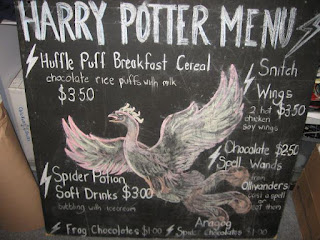 HARRY POTTER MENU
Huffle Puff Breakfast Cereal
chocolate rice puffs with milk
$3.50
Snitch
Wings
2 hot $3.50
chicken
soy wings
Chocolate $2.50
Spell Wands
from
Ollivanders
cast a spell
or
eat them
Spider Potion
Soft Drinks $3.00
bubbling with icecream
Frog Chocolates $1.00
Aragog
Spider Chocolates $1.00